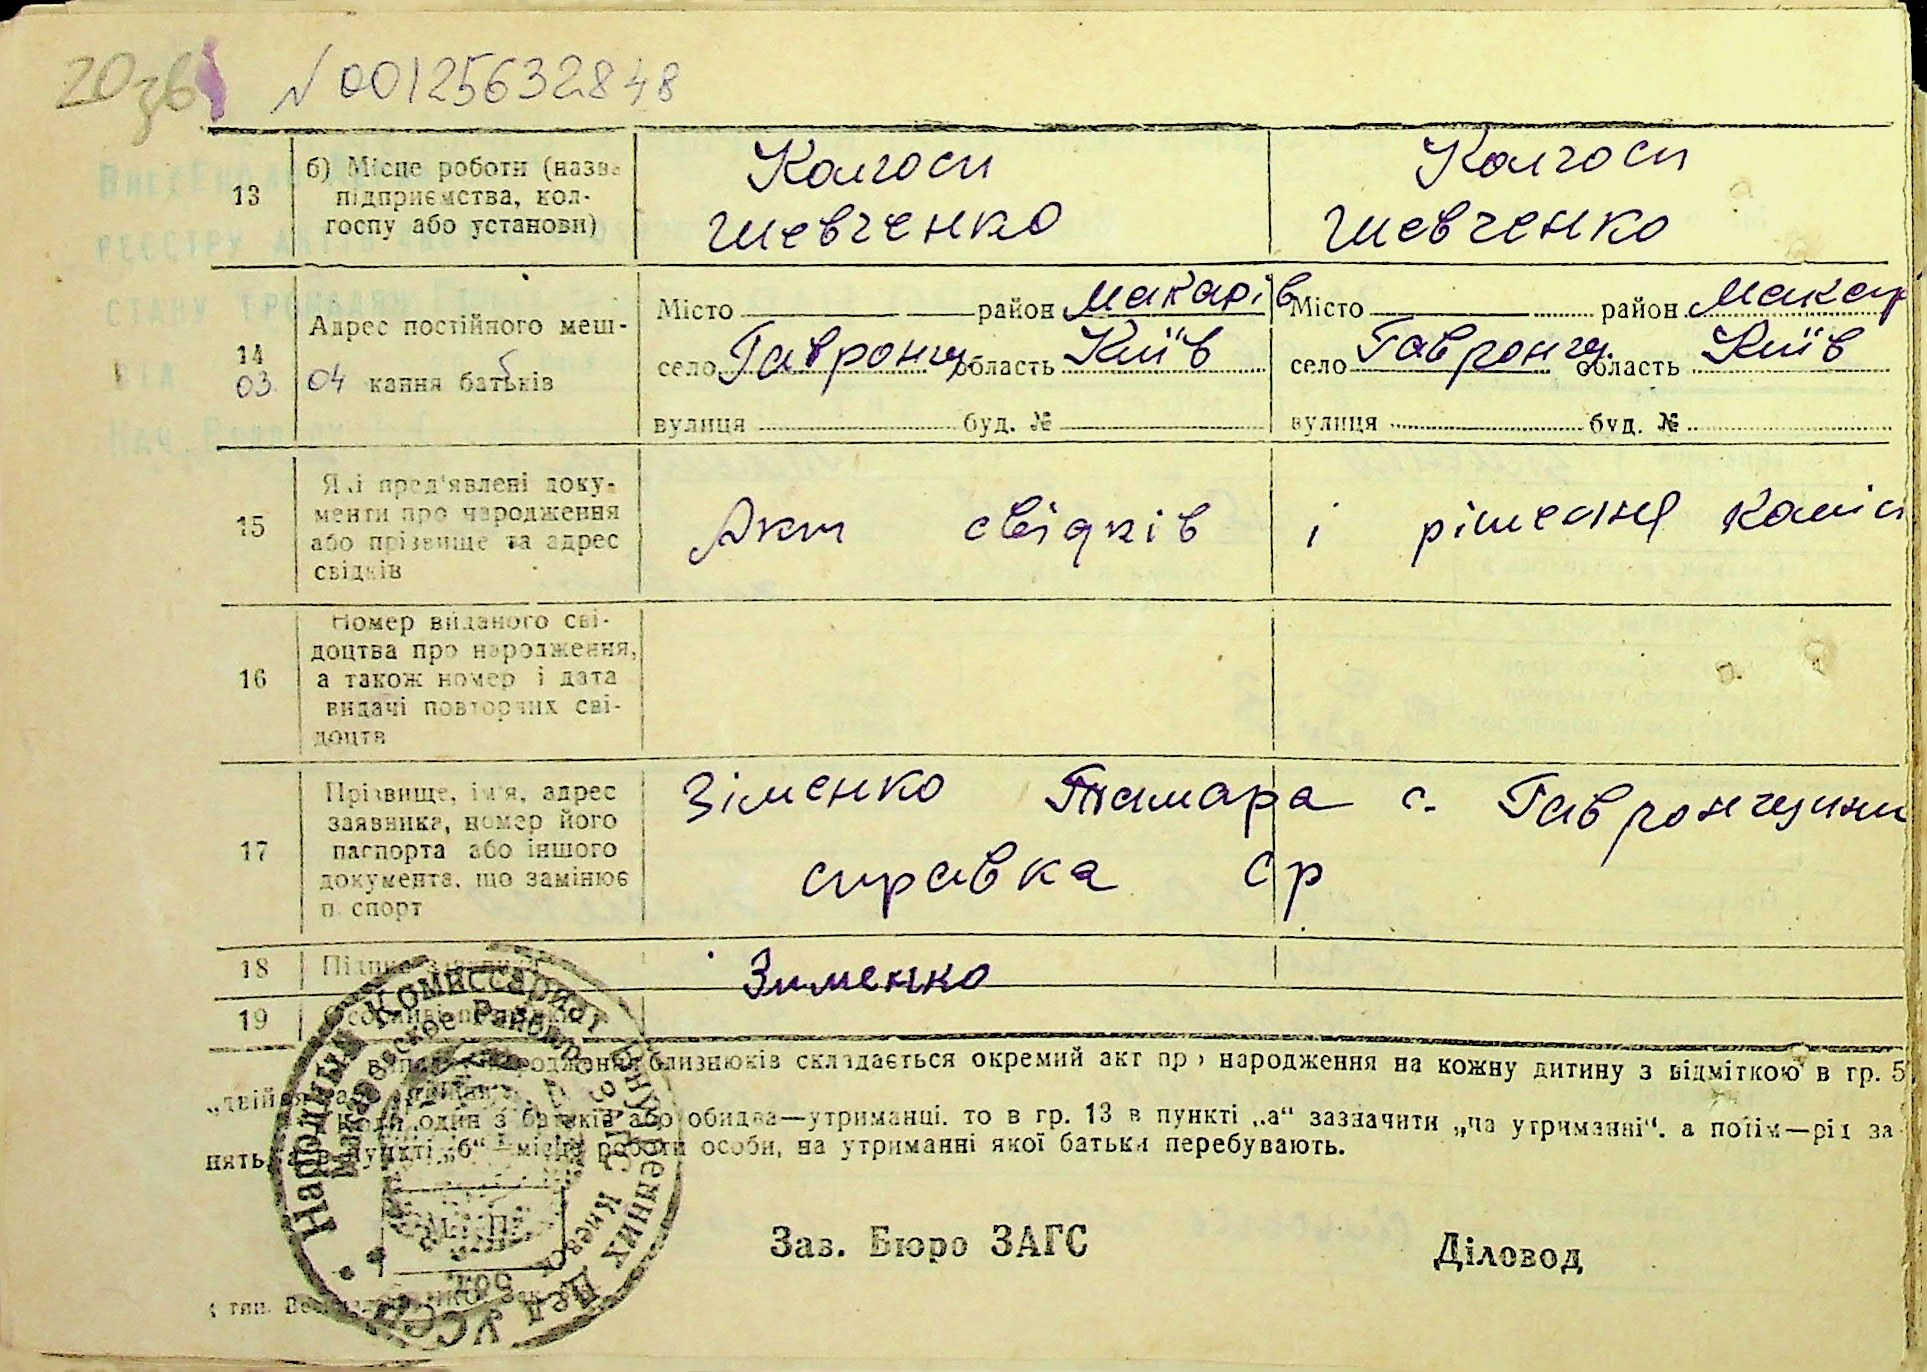 № 00125632848
13
б) Місце роботи (назва
підприємства, кол-
госпу або установи)
Колгосп
Шевченко
Колгосп
Шевченко
14
Адрес постійного меш-
кання батьків
03 04
Місто район Макарів
село Гавронщ. область Київ
вулиця буд. №
Місто район Макар
село Гавронщ. область Київ
вулиця буд. №
15
Які пред'явлені доку-
менти про народження
або прізвище та адрес
свідків
Акт свідків і рішення коміс
16
Номер виданого сві-
доцтва про народження,
а також номер і дата
видачі повторних сві-
доцтв
17
Прізвище, ім'я, адрес
заявника, номер його
паспорта або іншого
документа, що замінює
паспорт
Зіменко Тамара с. Гавронщини
справка ср
18
Зименко
19
народження близнюків складається окремий акт про народження на кожну дитину з відміткою в гр. 5
один з батьків або обидва—утриманці, то в гр. 13 в пункті „а“ зазначити „на утриманні“, а потім—рід за-
нять, а в пункті „б“—місце роботи особи, на утриманні якої батьки перебувають.
Народный Комиссариат Внутренних Дел УССР
Макаровское Районное ЗАГС Киевск
Зав. Бюро ЗАГС
Діловод